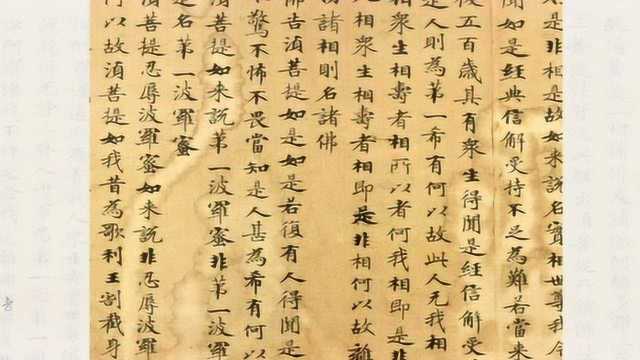 是非相是故如來說名實相世尊我今
聞如是經典信解受持不足為難若當來
後五百歲其有衆生得聞是經信解受
是人則為第一希有何以故此人无我相
衆生相壽者相所以者何我相即是非
相衆生相壽者相即是非相何以故離
諸相則名諸佛
佛告湏菩提如是如是若復有人得聞是
驚不怖不畏當知是人甚為希有何以
湏菩提如來說苐一波羅蜜非苐一波羅
是名苐一波羅蜜
湏菩提忍辱波羅蜜如來說非忍辱波羅
何以故湏菩提如我昔為歌利王割截身